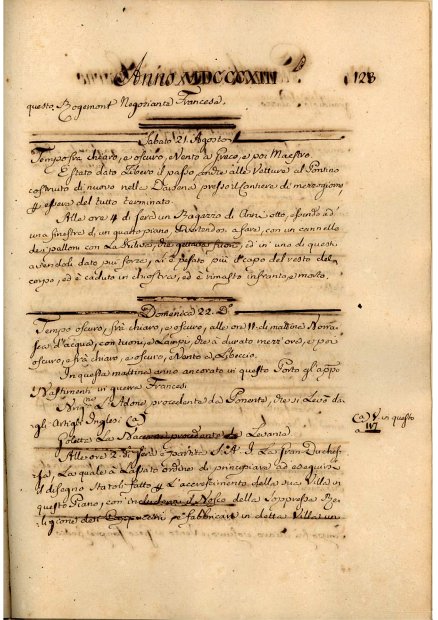 Anno MDCCCXIII 123
questo, Bogemont Negoziante Francese.
Sabato 21. Agosto
Tempo frà chiaro, e oscuro, Vento a Greco, e poi Maestro.
E stato dato Libero il passo, anche alle Vetture al Pontino
costruito di nuovo nella Darsena presso il Cantiere di mezzogiorno
essere del tutto terminato.
Alle ore 4 di sera un Ragazzo di Anni otto, essendo ad
una finestra di un quarto piano, con un cannello
dei palloni con La che gettava fuori, ed in uno di questi
avendoli dato più forza, gl'à pesato più il capo del resto del
corpo, ed è caduto in chiostra, ed è rimasto infranto, e morto.
Domenica 22. Dº
Tempo oscuro, frà chiaro, e oscuro, alle ore 11. di mattina
d'acqua, con tuoni, e Lampi, che à durato mezz'ora, e poi
oscuro, e frà chiaro, e oscuro, Vento a Libeccio.
In questa mattina anno ancorato in questo Porto gl'appo
Bastimenti in guerra Francesi
L'Adone procedente da Ponente, che si Levò da
gl'Ostaggi Inglesi Ca
Goletta La procedente da Levante
Ca V. in questo
a 117
Alle ore 2. di sera è partita S.A.I. La Gran Duches-
sa, La quale à Lasciato ordine di principiare ad eseguire
il disegno statoli fatto L'accrescimento della sua Villa in
questo Piano, con includervi il Bosco della Soppressa Re-
ligione dei Cappuccini, e fabbricare in detta Villa un